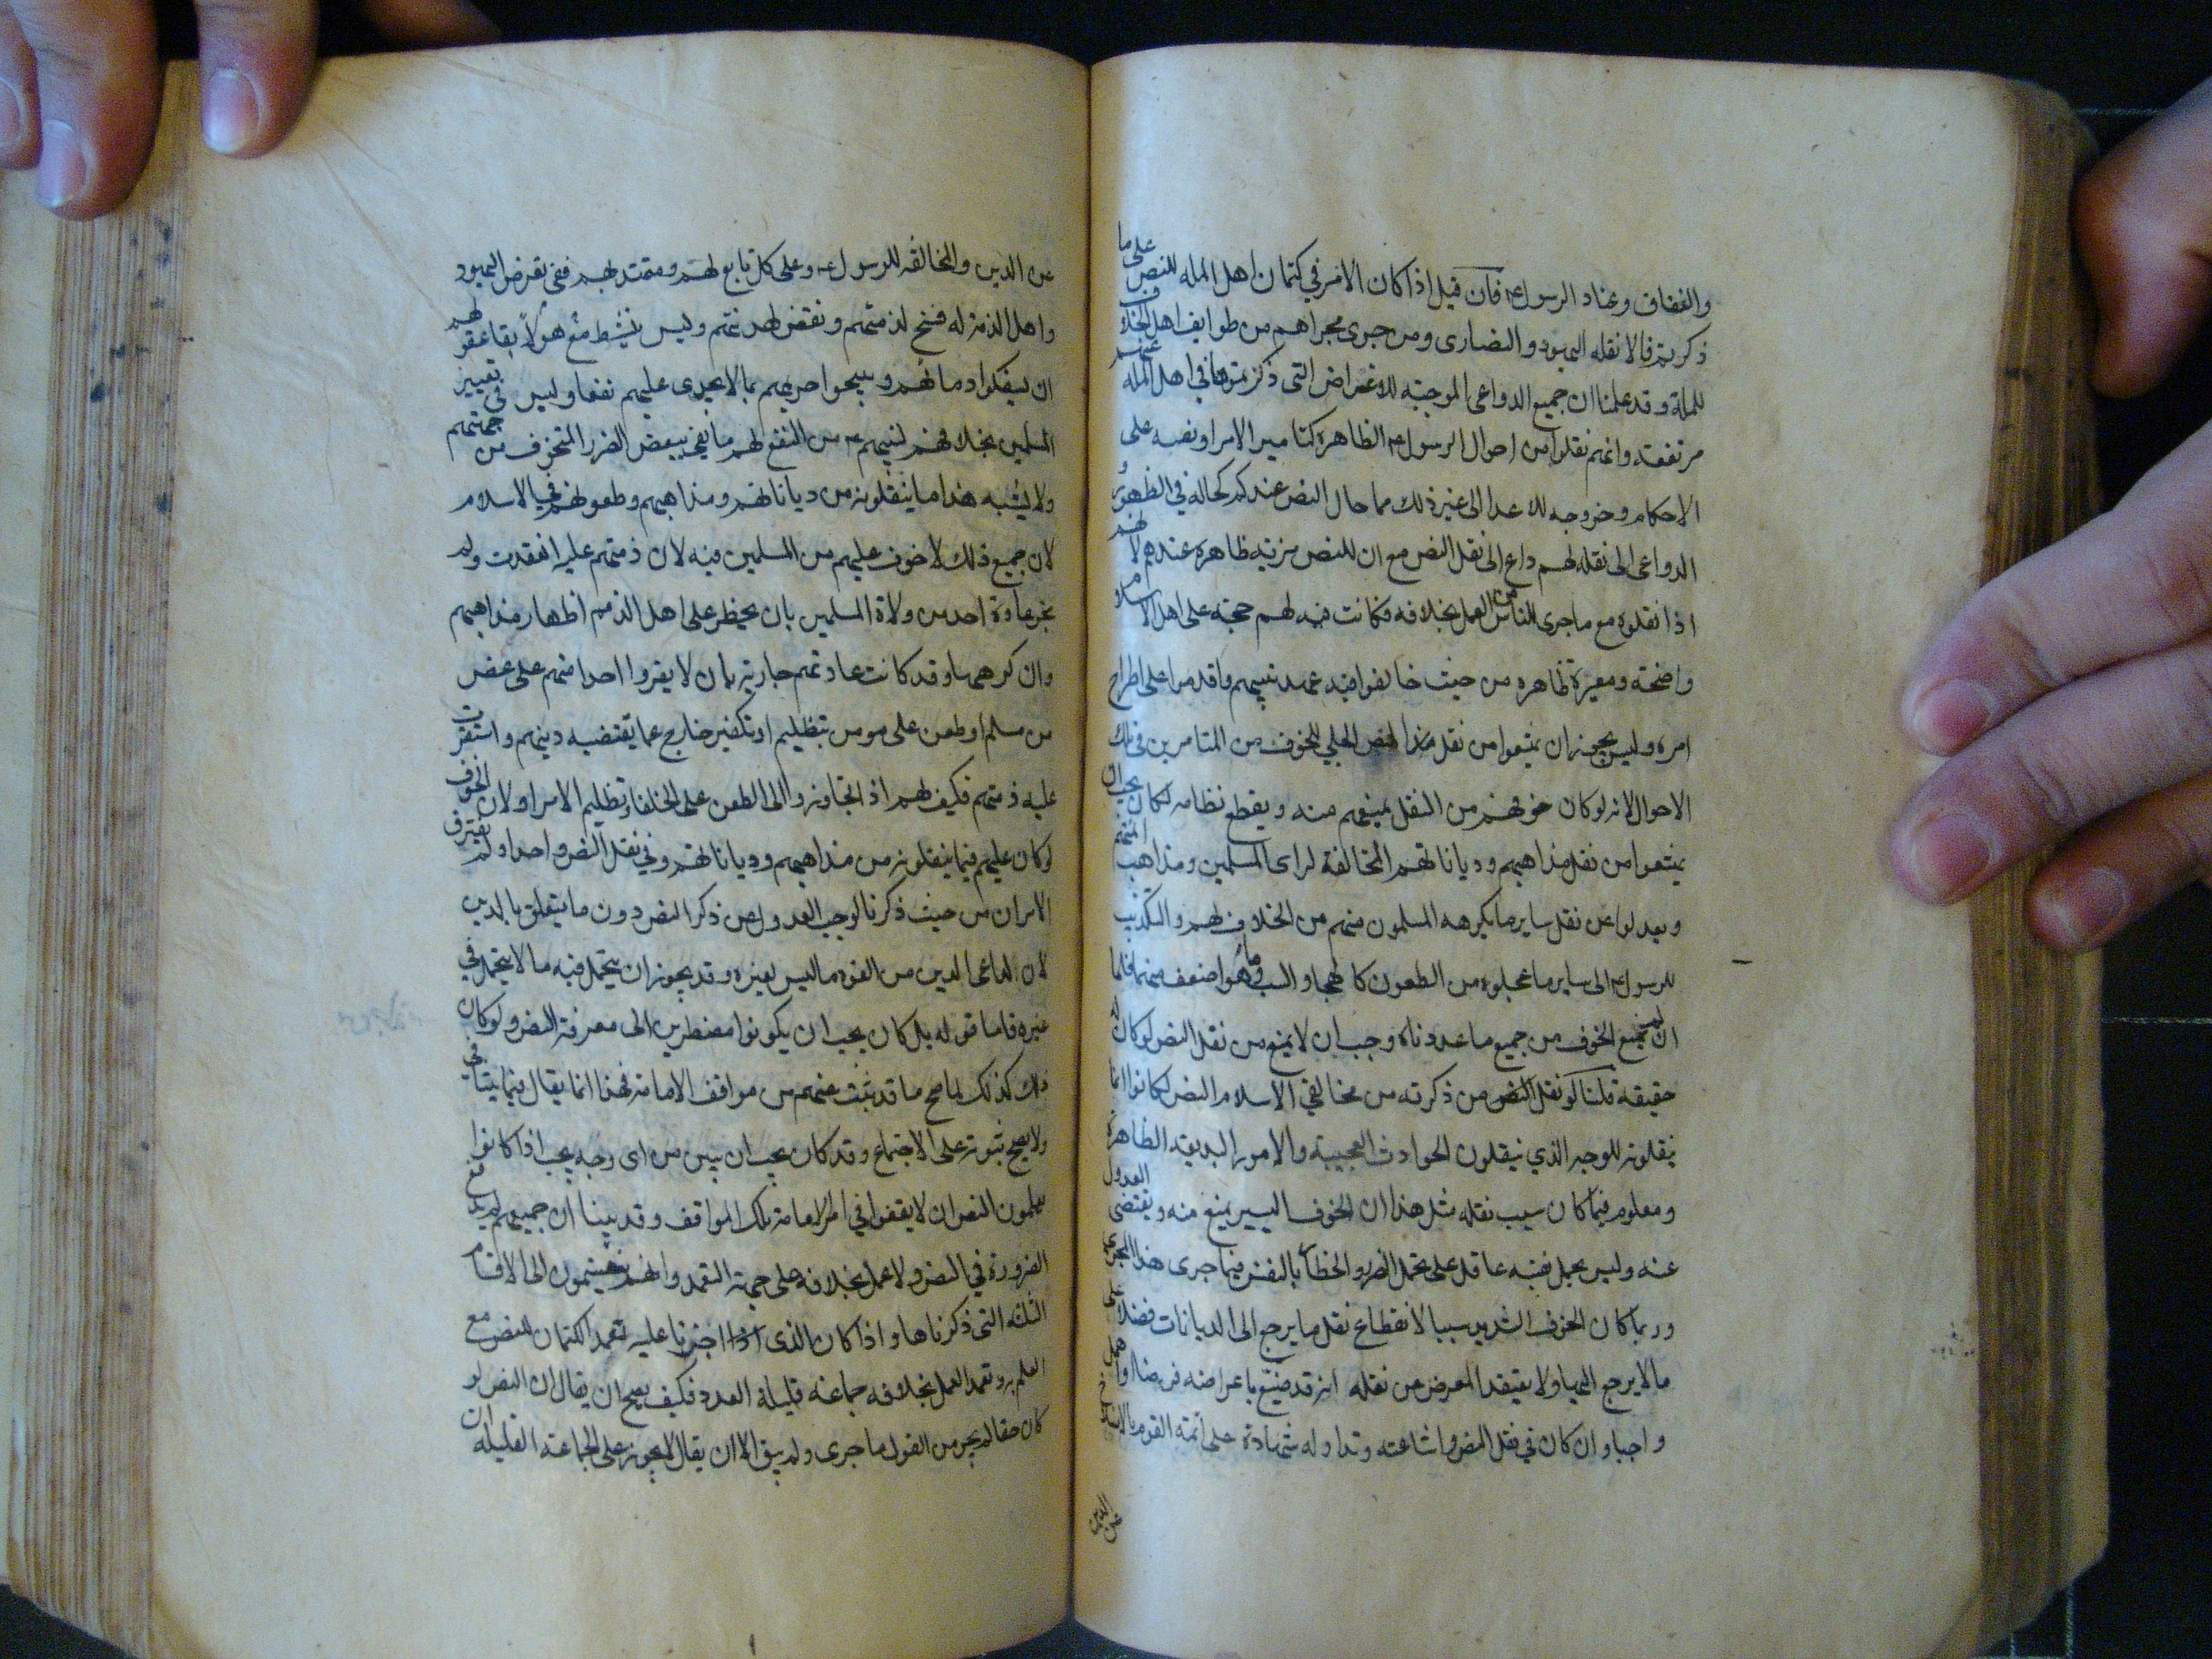 والنفاق وعناد الرسول ص فان قيل اذا كان الامر في كتمان اهل المله للنص على ما
ذكرتم فالا نقله اليهود والنصارى ومن جرى مجراهم من طوايف اهل الخلاف
للملة وقد علمنا ان جميع الدواعى الموجبة للاغراض التى ذكرتموها في اهل المله عنهم
مرتفعة وانهم نقلوا من احوال الرسول ص الظاهرة كتاميره الامرا ونصبه على
الاحكام وخروجه للاعدا الى غير ذلك مما حال النص عندكم كحاله في الظهور و
الدواعى الى نقله لهم داع الى نقل النص مع ان للنص مزية ظاهرة عندهم لانهم
اذا نقلوه مع ما جرى من الناس العمل بخلافه فكانت فيه لهم حجة على اهل الاسلام
واضحة ومعيرة ظاهره من حيث خالفوا فيه عهد نبيهم واقدموا على اطراح
امره وليس يجوز ان يمتنعوا من نقل هذا النص الجلي للخوف من المتامرين في تلك
الاحوال لانه لو كان خوفهم من النقل يمنعهم منه ويقطع نظامه لكان يجب ان
يمتنعوا من نقل مذاهبهم ودياناتهم المخالفة لراى المسلمين ومذاهب ائمتهم
ويعدلوا عن نقل ساير ما يكرهه المسلمون منهم من الخلاف لهم والتكذيب
للرسول ص الى ساير ما عملوه من الطعون كالهجا والسب وما هو اضعف منهما فلما
ان لم يمنع الخوف من جميع ما عددناه وجب ان لا يمنع من نقل النص لو كان له
حقيقة قلنا لو نقل النص من ذكرته من مخالفي الاسلام النص لكانوا انما
ينقلونه للوجه الذي ينقلون الحوادث العجيبة والامور البديعة الظاهرة
ومعلوم فيما كان سبب نقله مثل هذا ان الخوف اليسير يمنع منه ويقتضى العدول
عنه وليس يحمل نفسه عاقل على تحمل الضرر والخطار بالنفس فيما جرى هذا المجرى
وربما كان الخوف الشديد سببا لانقطاع نقل ما يرجع الى الديانات فضلا على
ما لا يرجع اليها ولا يعتقد المعرض عن نقله انه قد ضيع باعراضه فرضا او اهمل
واجبا وان كان في نقل النص واشاعته وتداوله شهادة على ائمة القوم بالانسلاخ
عن الدين
عن الدين والمخالفة للرسول ص وعلى كل تابع لهم ومقتد بهم ففي تعرض اليهود
واهل الذمة له فسخ لذمتهم ونقض لعهدهم وليس ينشط مع هولا بقاعقر لهم
ان يسفكوا دمائهم ويبيحوا حريمهم بما لا يجدى عليهم نفعا وليس في تعيير
المسلمين بخلافهم لنبيهم ص من النفع لهم ما يفي ببعض الضرر المتخوف من جهتهم
ولا يشبه هذا ما ينقلونه من دياناتهم ومذاهبهم وطعونهم في الاسلام
لان جميع ذلك لا خوف عليهم من المسلمين فيه لان ذمتهم عليه انعقدت ولم
تجر عادة احد من ولاة المسلمين بان يحظر على اهل الذمم اظهار مذاهبهم
وان كرهها وقد كانت عادتهم جارية بان لا يقروا احدا منهم على عض
من مسلم او طعن على مومن بتظليم او تكفير خارج عما يقتضيه دينهم واستقرت
عليه ذمتهم فكيف لهم اذا تجاوزوا الى الطعن على الخلفا وتظليم الامرا ولان الخوف
لو كان عليهم فيما ينقلونه من مذاهبهم ودياناتهم وفي نقل النص واحدا ولم يفترق
الامران من حيث ذكرنا لوجب العدول عن ذكر النص دون ما يتعلق بالدين
لان لداعى الدين من القوه ما ليس لغيره وقد يجوز ان يتحمل فيه ما لا يتحمل في
غيره فاما قوله بل كان يجب ان يكونوا مضطرين الى معرفة النص ولو كان
ذلك كذلك لما صح ما قد ثبت عنهم من مواقف الامامة فهذا انما يقال فيما يتاتى
ولا يصح ثبوته على الاجتماع وقد كان يجب ان يبين من اى وجه يجب اذا كانوا
يعلمون النص ان لا يقفوا في امر الامامة تلك المواقف وقد بينا ان جميعهم لم يدفع
الضرورة في النص ولا عمل بخلافه على جهة التعمد وانهم ينقسمون الى الاقسام
الثلثه التى ذكرناها واذا كان الذى اجزنا عليه تعمد الكتمان للنص مع
العلم به وتعمد العمل بخلافه جماعة قليلة العدد فكيف يصح ان يقال ان النص لو
كان حقا لم يجر من القول ما جرى ولم يبق الا ان يقال لا يجوز على الجماعة القليلة ان